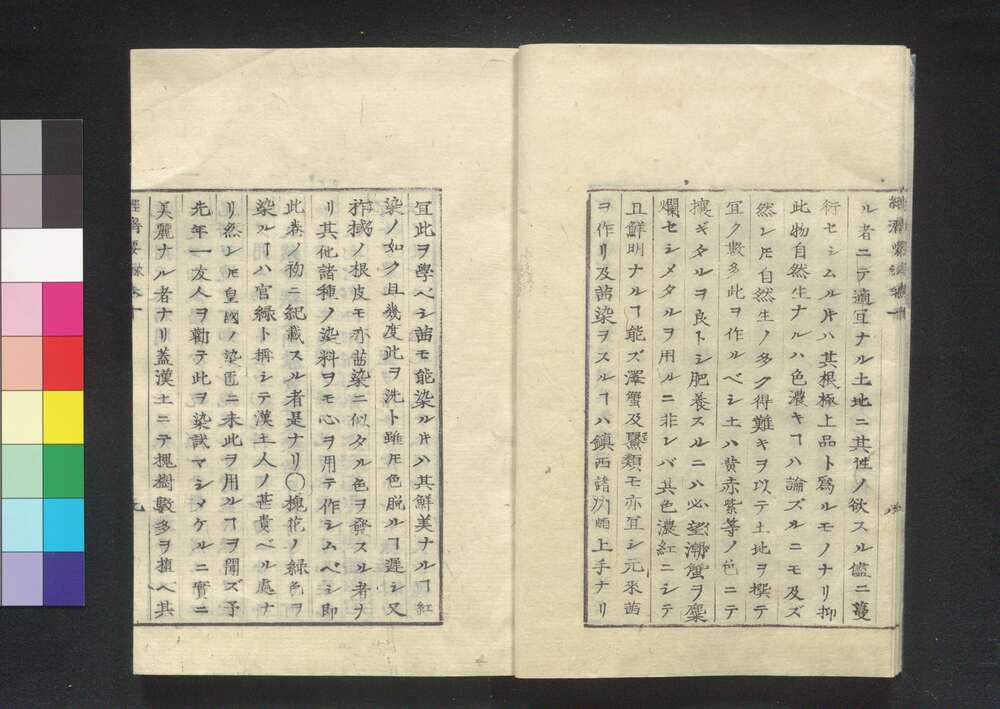 ル者ニテ適宜ナル土地ニ其性ノ欲スル儘ニ蔓
衍セシムル片ハ其根極上品ト爲ルモノナリ抑
此物自然生ナルハ色濃キヿハ論ズルニモ及ズ
然レ𪜈自然生ノ多ク得難キヲ以テ土地ヲ撰テ
宜ク數多此ヲ作ルベシ土ハ黄赤紫等ノ色ニテ
壤ギタルヲ良トシ肥養スルニハ必望潮蟹ヲ糜
爛セシメタルヲ用ルニ非レバ其色濃紅ニシテ
且鮮明ナルヿ能ズ澤蟹及鱉類モ亦宜シ元來茜
ヲ作リ及茜染ヲスルヿハ鎮西諸刕師上手ナリ
宜此ヲ學ベシ茜モ能染ル片ハ其鮮美ナルヿ紅
染ノ如ク且幾度此ヲ洗ト雖𪜈色脱ルヿ遲シ又
柞ノ根皮モ亦茜染ニ似タル色ヲ發スル者ナ
リ其他諸種ノ染料ヲモ心ヲ用テ作シムベシ即
此巻ノ初ニ紀載スル者是ナリ〇槐花ノ緑色ヲ
染ルヿハ官緑ト稱シテ漢土人ノ甚貴ベル處ナ
リ然レ𪜈皇國ノ染匠ニ未此ヲ用ルヿヲ聞ズ予
先年一友人ヲ勸テ此ヲ染試マシメケルニ實ニ
美麗ナル者ナリ蓋漢土ニテ槐樹數多ヲ植ヘ其
經濟要録巻十
九